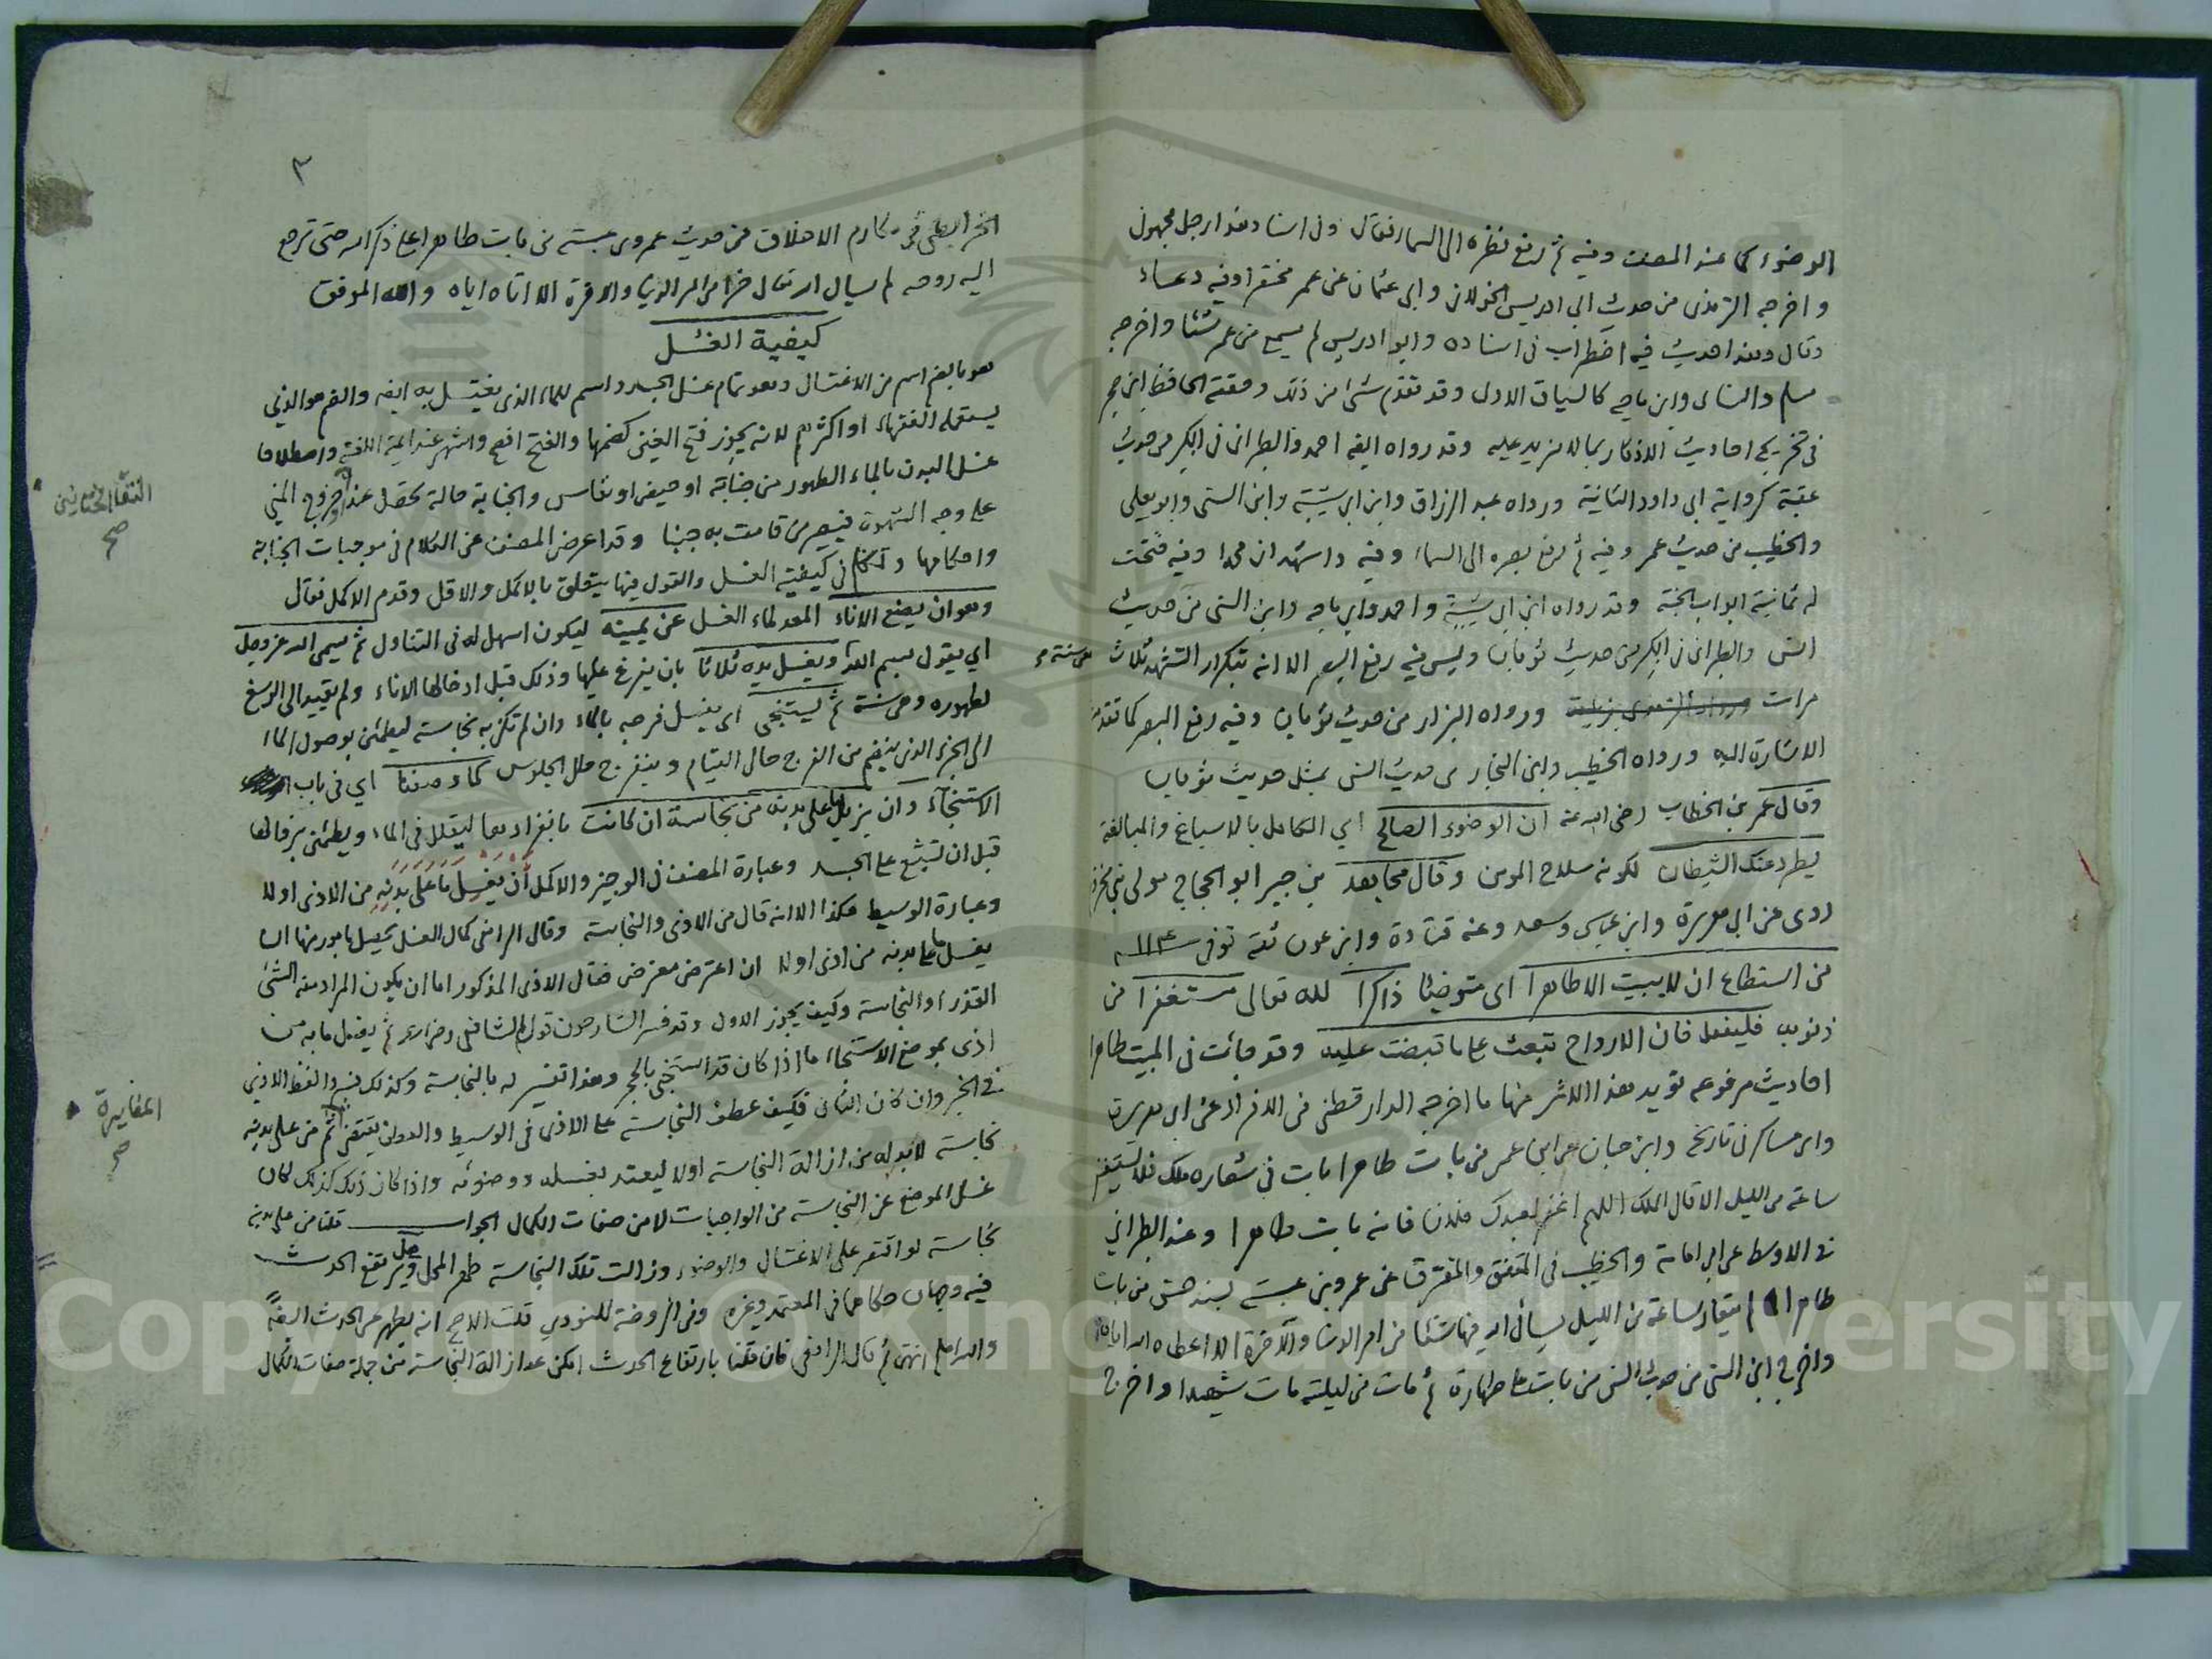 الوضوء كما عند المصنف وفيه ثم رفع نظره الى السماء فقال وفى اسناد هذا رجل مجهول
واخرجه الترمذى من حديث ابى ادريس الخولانى وابى عثمان عن عمر مختصرا وفيه دعاء
وقال وهذا حديث فيه اضطراب فى اسناده وابو ادريس لم يسمع من عمر شيئا واخرجه
مسلم والنسائى وابن ماجه كالسياق الاول وقد تقدم شئ من ذلك وحققه الحافظ ابن حجر
فى تخريج احاديث الاذكار بما لا مزيد عليه وقد رواه ايضا احمد والطبرانى فى الكبير من حديث
عقبة كرواية ابى داود الثانية ورواه عبد الرزاق وابن ابى شيبة وابن السنى وابو يعلى
والخطيب من حديث عمر وفيه ثم رفع بصره الى السماء وفيه واشهد ان محمدا وفيه فتحت
له ثمانية ابواب الجنة وقد رواه ابن ابى شيبة واحمد وابن ماجه وابن السنى من حديث
انس والطبرانى فى الكبير من حديث ثوبان وليس فيه رفع البصر الا انه بتكرار التشهد ثلاث
مرات ورواه البزار من حديث ثوبان وفيه رفع البصر كما تقدمت
الاشارة اليه ورواه الخطيب وابن النجار من حديث انس بمثل حديث ثوبان
وقال عمر بن الخطاب رضى الله عنه ان الوضوء الصالح اي الكامل بالاسباغ والمبالغة
يطرد عنك الشيطان لكونه سلاح المومن وقال مجاهد بن جبير ابو الحجاج مولى بنى مخزوم
روى عن ابى هريرة وابن عباس وسعد وعنه قتادة وابن عون ثقة توفى سنة ١١٤
من استطاع ان لا يبيت الا طاهرا اى متوضئا ذاكرا لله تعالى مستغفرا من
ذنوبه فليفعل فان الارواح تبعث على ما قبضت عليه وقد جائت فى المبيت طاهرا
احاديث مرفوعه تؤيد هذا الاثر منها ما اخرجه الدارقطنى فى الافراد عن ابى هريرة
وابن عساكر فى تاريخه وابن حبان عن ابن عمر من بات طاهرا بات فى شعاره ملك فلا يستيقظ
ساعة من الليل الا قال الملك اللهم اغفر لعبدك فلان فانه بات طاهرا وعند الطبراني
فى الاوسط عن ابى امامة والخطيب فى المتفق والمفترق عن عمرو بن عبسة بسند حسن من بات
طاهرا لم يتعار ساعة من الليل يسأل الله فيها شيئا من امر الدنيا والآخرة الا اعطاه الله اياه
واخرج ابن السنى من حديث انس من بات على طهارة ثم مات من ليلته مات شهيدا واخرج
٣
الخرايطى فى مكارم الاخلاق من حديث عمرو بن عبسة من بات طاهرا على ذكر الله حتى ترجع
اليه روحه لم يسال الله تعالى خيرا من امر الدنيا والاخرة الا اتاه اياه والله الموفق
كيفية الغسل
هو بالضم اسم من الاغتسال وهو تمام غسل الجسد واسم للماء الذى يغتسل به ايضا والضم هو الذي
يستعمله الفقهاء او اكثرهم لانه يجوز فتح الغين كضمها والفتح افصح واشهر عند ايمة اللغة واصطلاحا
غسل البدن بالماء الطهور من جنابة او حيض او نفاس والجنابة حالة تحصل عند خروج المني
على وجه الشهوة فيصير من قامت به جنبا وقد اعرض المصنف عن الكلام فى موجبات الجنابة
واحكامها وتكلم فى كيفية الغسل والقول فيها يتعلق بالاكمل والاقل وقدم الاكمل فقال
وهو ان يضع الاناء المعد لماء الغسل عن يمينه ليكون اسهل له فى التناول ثم يسمى الله عز وجل
اي يقول بسم الله ويغسل يديه ثلاثا بان يفرغ عليها وذلك قبل ادخالها الاناء ولم يقيد الى الرسغ
لظهوره وهى سنة ثم يستنجى اى يغسل فرجه بالماء وان لم تكن به نجاسة ليطمئن بوصول الماء
الى الجزء الذى ينضم من الفرج حال القيام وينفرج حال الجلوس كما وصفنا اي فى باب
الاستنجآء وان يزيل ما على بدنه من نجاسة ان كانت بانفرادها ليقلل فى الماء ويطمئن بزوالها
قبل ان تشيع على الجسد وعبارة المصنف فى الوجيز والاكمل أن يغسل ما على بدنه من الاذى اولا
وعبارة الوسيط هكذا الا انه قال من الاذى والنجاسة وقال الرافعى كمال الغسل يحصل بامور منها ان
يغسل ما على بدنه من اذى اولا ان اعترض معترض فقال الاذى المذكور اما ان يكون المراد منه الشئ
القذر او النجاسة وكيف يجوز الاول وقد فسر الشارحون قول الشافعى رضى الله عنه ثم يغسل ما به من
اذى بموضع الاستنجاء ما اذا كان قد استنجى بالحجر وهذا تفسير له بالنجاسة وكذلك فسروا لفظ الاذى
فى الخبر وان كان الثانى فكيف عطف النجاسة على الاذى فى الوسيط والعطف يقتضى ثم من على بدنه
نجاسة لابد له من ازالة النجاسة اولا ليعتد بغسله ووضوئه واذا كان ذلك كذلك كان
غسل الموضع عن النجاسة من الواجبات لا من صفات الكمال الجواب قلنا من على بدنه
نجاسة لو اقتصر على الاغتسال والوضوء وزالت تلك النجاسة طهر المحل وهل يرتفع الحدث
فيه وجهان حكاهما فى المعتمد وغيره وفى الروضة للنووي قلت الاصح انه يطهر عن الحدث ايضا
والله اعلم انتهى ثم قال الرافعى فان قلنا بارتفاع الحدث امكن عد ازالة النجاسة من جملة صفات الكمال
المغايرة
صح
Copyright © King Saud University